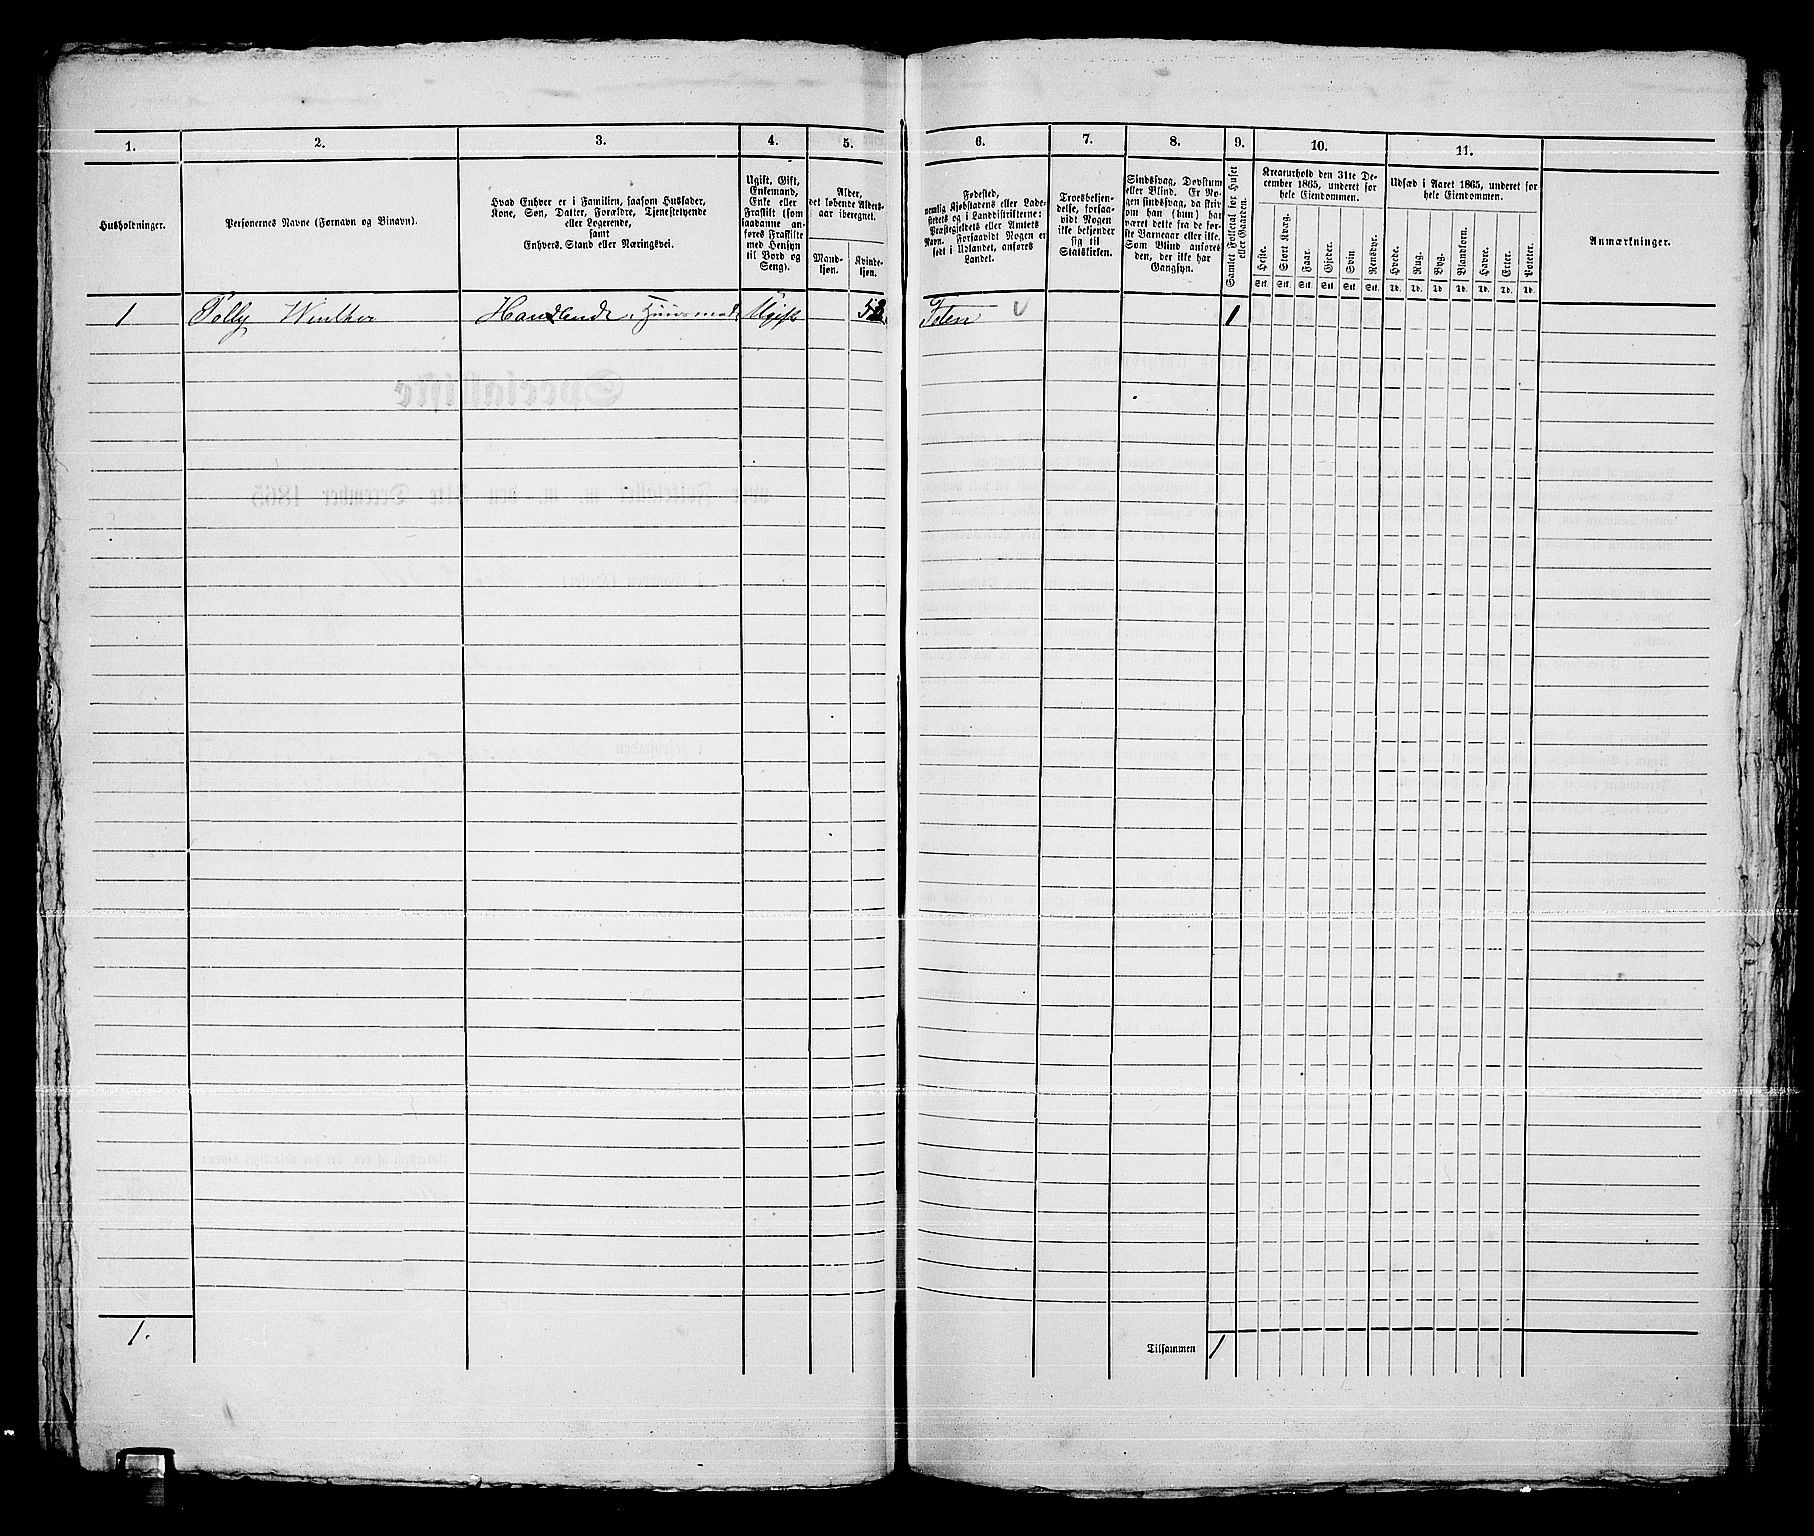 1. 2. 3. 4. 5. 6. 7. 8. 9. 10. 11.
Husholdninger.
Personernes Navne (Fornavn og Binavn).
Hvad Enhver er i Familien, saasom Husfader,
Kone, Søn, Datter, Forældre, Tjenestetyende
eller Logerende,
samt
Enhvers Stand eller Næringsvei.
Ugift, Gift,
Enkemand,
Enke eller
Fraskilt (som
saadanne an-
føres Fraskilte
med Hensyn
til Bord og
Seng).
Alder,
det løbende Alders-
aar iberegnet.
Mand-
kjøn.
Kvinde-
kjøn.
Fødested,
nemlig Kjøbstadens eller Lade-
stedets og i Landdistrikterne:
Præstegjeldets eller Amtets
Navn. Forsaavidt Nogen er
født i Udlandet, anføres
Landet.
Troesbekjen-
delse, forsaa-
vidt Nogen
ikke bekjender
sig til
Statskirken.
Sindssvag, Døvstum
eller Blind. Er No-
gen sindssvag, da skriv
om han (hun) har
været dette fra de før-
ste Barneaar eller ikke.
Som Blind anføres
den, der ikke har
Gangsyn.
Samlet Folketal for Huset
eller Gaarden.
Kreaturhold den 31te De-
cember 1865, underet for
hele Eiendommen.
Heste.
Stort Kvæg.
Faar.
Gjeder.
Svin
Rensdyr.
Stk. Stk. Stk. Stk. Stk. Stk.
Udsæd i Aaret 1865, underet for
hele Eiendommen.
Hvede.
Rug.
Byg.
Blandkorn.
Havre.
Erter.
Poteter.
Td. Td. Td. Td. Td. Td. Td.
Anmærkninger.
1 Winther Handlende Ugift Toten 1
1.
Tilsammen 1